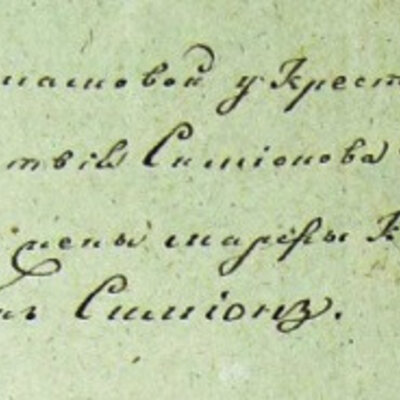 маиовой у Крест
твів Симіонова
жены Марѳы К
Симіонъ.